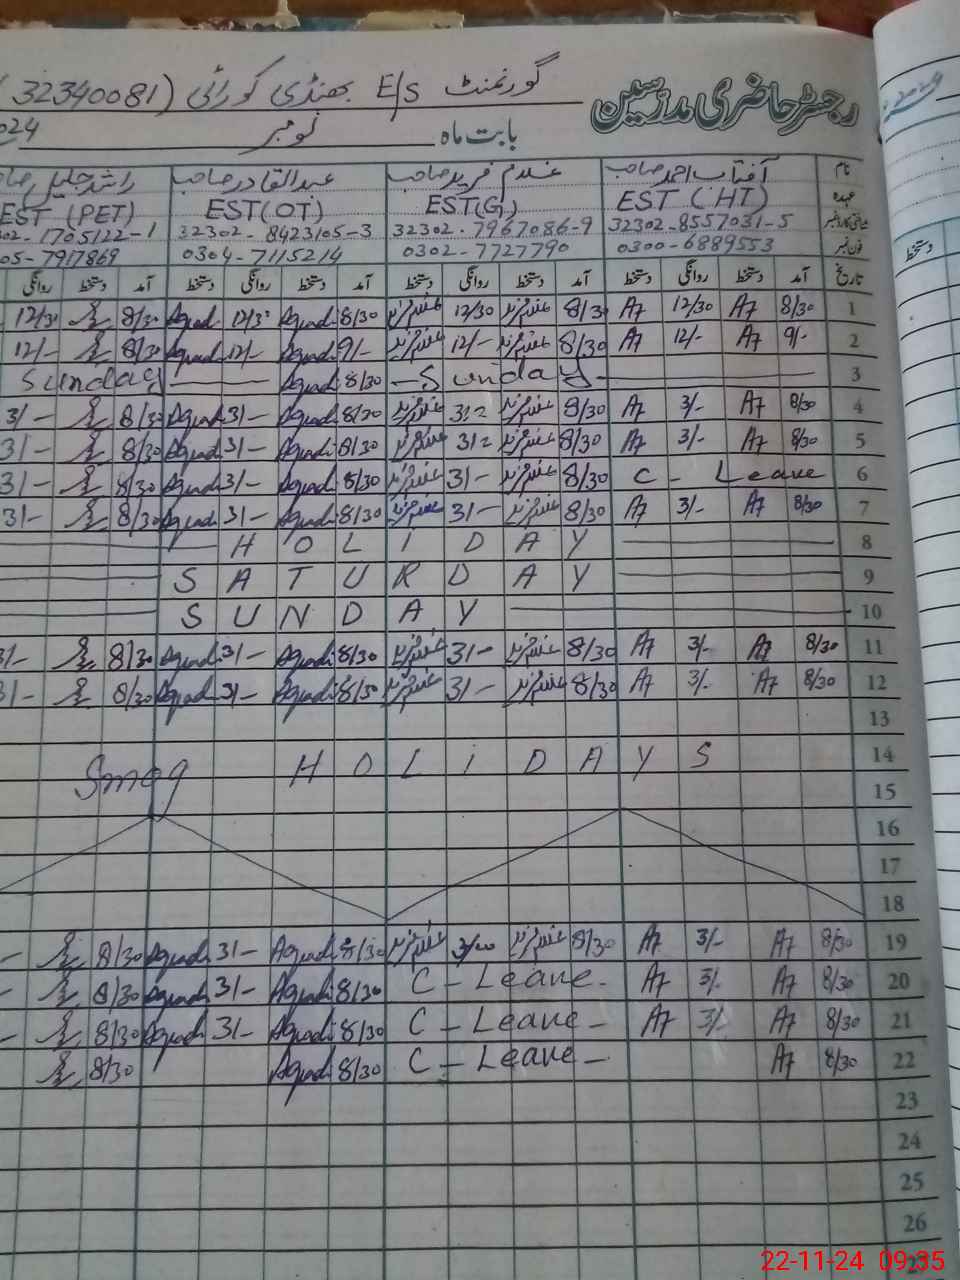 رجسٹر حاضری مدرسین
گورنمنٹ E/S بھنڈی کورائی (32340081)
بابت ماہ نومبر 2024
نام آفتاب احمد صاحب غلام فرید صاحب عبدالقادر صاحب راشد جلیل صاحب
عہدہ EST (HT) EST(G) EST(OT) EST (PET)
شناختی کارڈ نمبر 32302-8557031-5 32302-7967086-9 32302-8423105-3 302-1705122-1
فون نمبر 0300-6889553 0302-7727790 0304-7115214 05-7917869
تاریخ آمد دستخط روانگی دستخط آمد دستخط روانگی دستخط آمد دستخط روانگی دستخط آمد دستخط روانگی
دستخط
1 8/30 A7 12/30 A7 8/30 غلام فرید 12/30 غلام فرید 8/30 Aquadi 12/30 Aquadi 8/30 12/30
2 9/- A7 12/- A7 8/30 غلام فرید 12/- غلام فرید 9/- Aquadi 12/- Aquadi 8/30 12/-
3 Sunday 8/30 Aquadi Sunday
4 8/30 A7 3/- A7 8/30 غلام فرید 3/= غلام فرید 8/30 Aquadi 3/- Aquadi 8/30 3/-
5 8/30 A7 3/- A7 8/30 غلام فرید 3/= غلام فرید 8/30 Aquadi 3/- Aquadi 8/30 3/-
6 C - Leave 8/30 غلام فرید 3/- غلام فرید 8/30 Aquadi 3/- Aquadi 8/30 3/-
7 8/30 A7 3/- A7 8/30 غلام فرید 3/- غلام فرید 8/30 Aquadi 3/- Aquadi 8/30 3/-
8 HOLIDAY
9 SATURDAY
10 SUNDAY
11 8/30 A7 3/- A7 8/30 غلام فرید 3/- غلام فرید 8/30 Aquadi 3/- Aquadi 8/30 3/-
12 8/30 A7 3/- A7 8/30 غلام فرید 3/- غلام فرید 8/30 Aquadi 3/- Aquadi 8/30 3/-
13
14 Smog HOLiDAYS
15
16
17
18
19 8/30 A7 3/- A7 8/30 غلام فرید 3/00 غلام فرید 8/30 Aquadi 3/- Aquadi 8/30
20 8/30 A7 3/- A7 C - Leave - 8/30 Aquadi 3/- Aquadi 8/30
21 8/30 A7 3/- A7 C - Leave - 8/30 Aquadi 3/- Aquadi 8/30
22 8/30 A7 C - Leave - 8/30 Aquadi 8/30
23
24
25
26
22-11-24 09:35